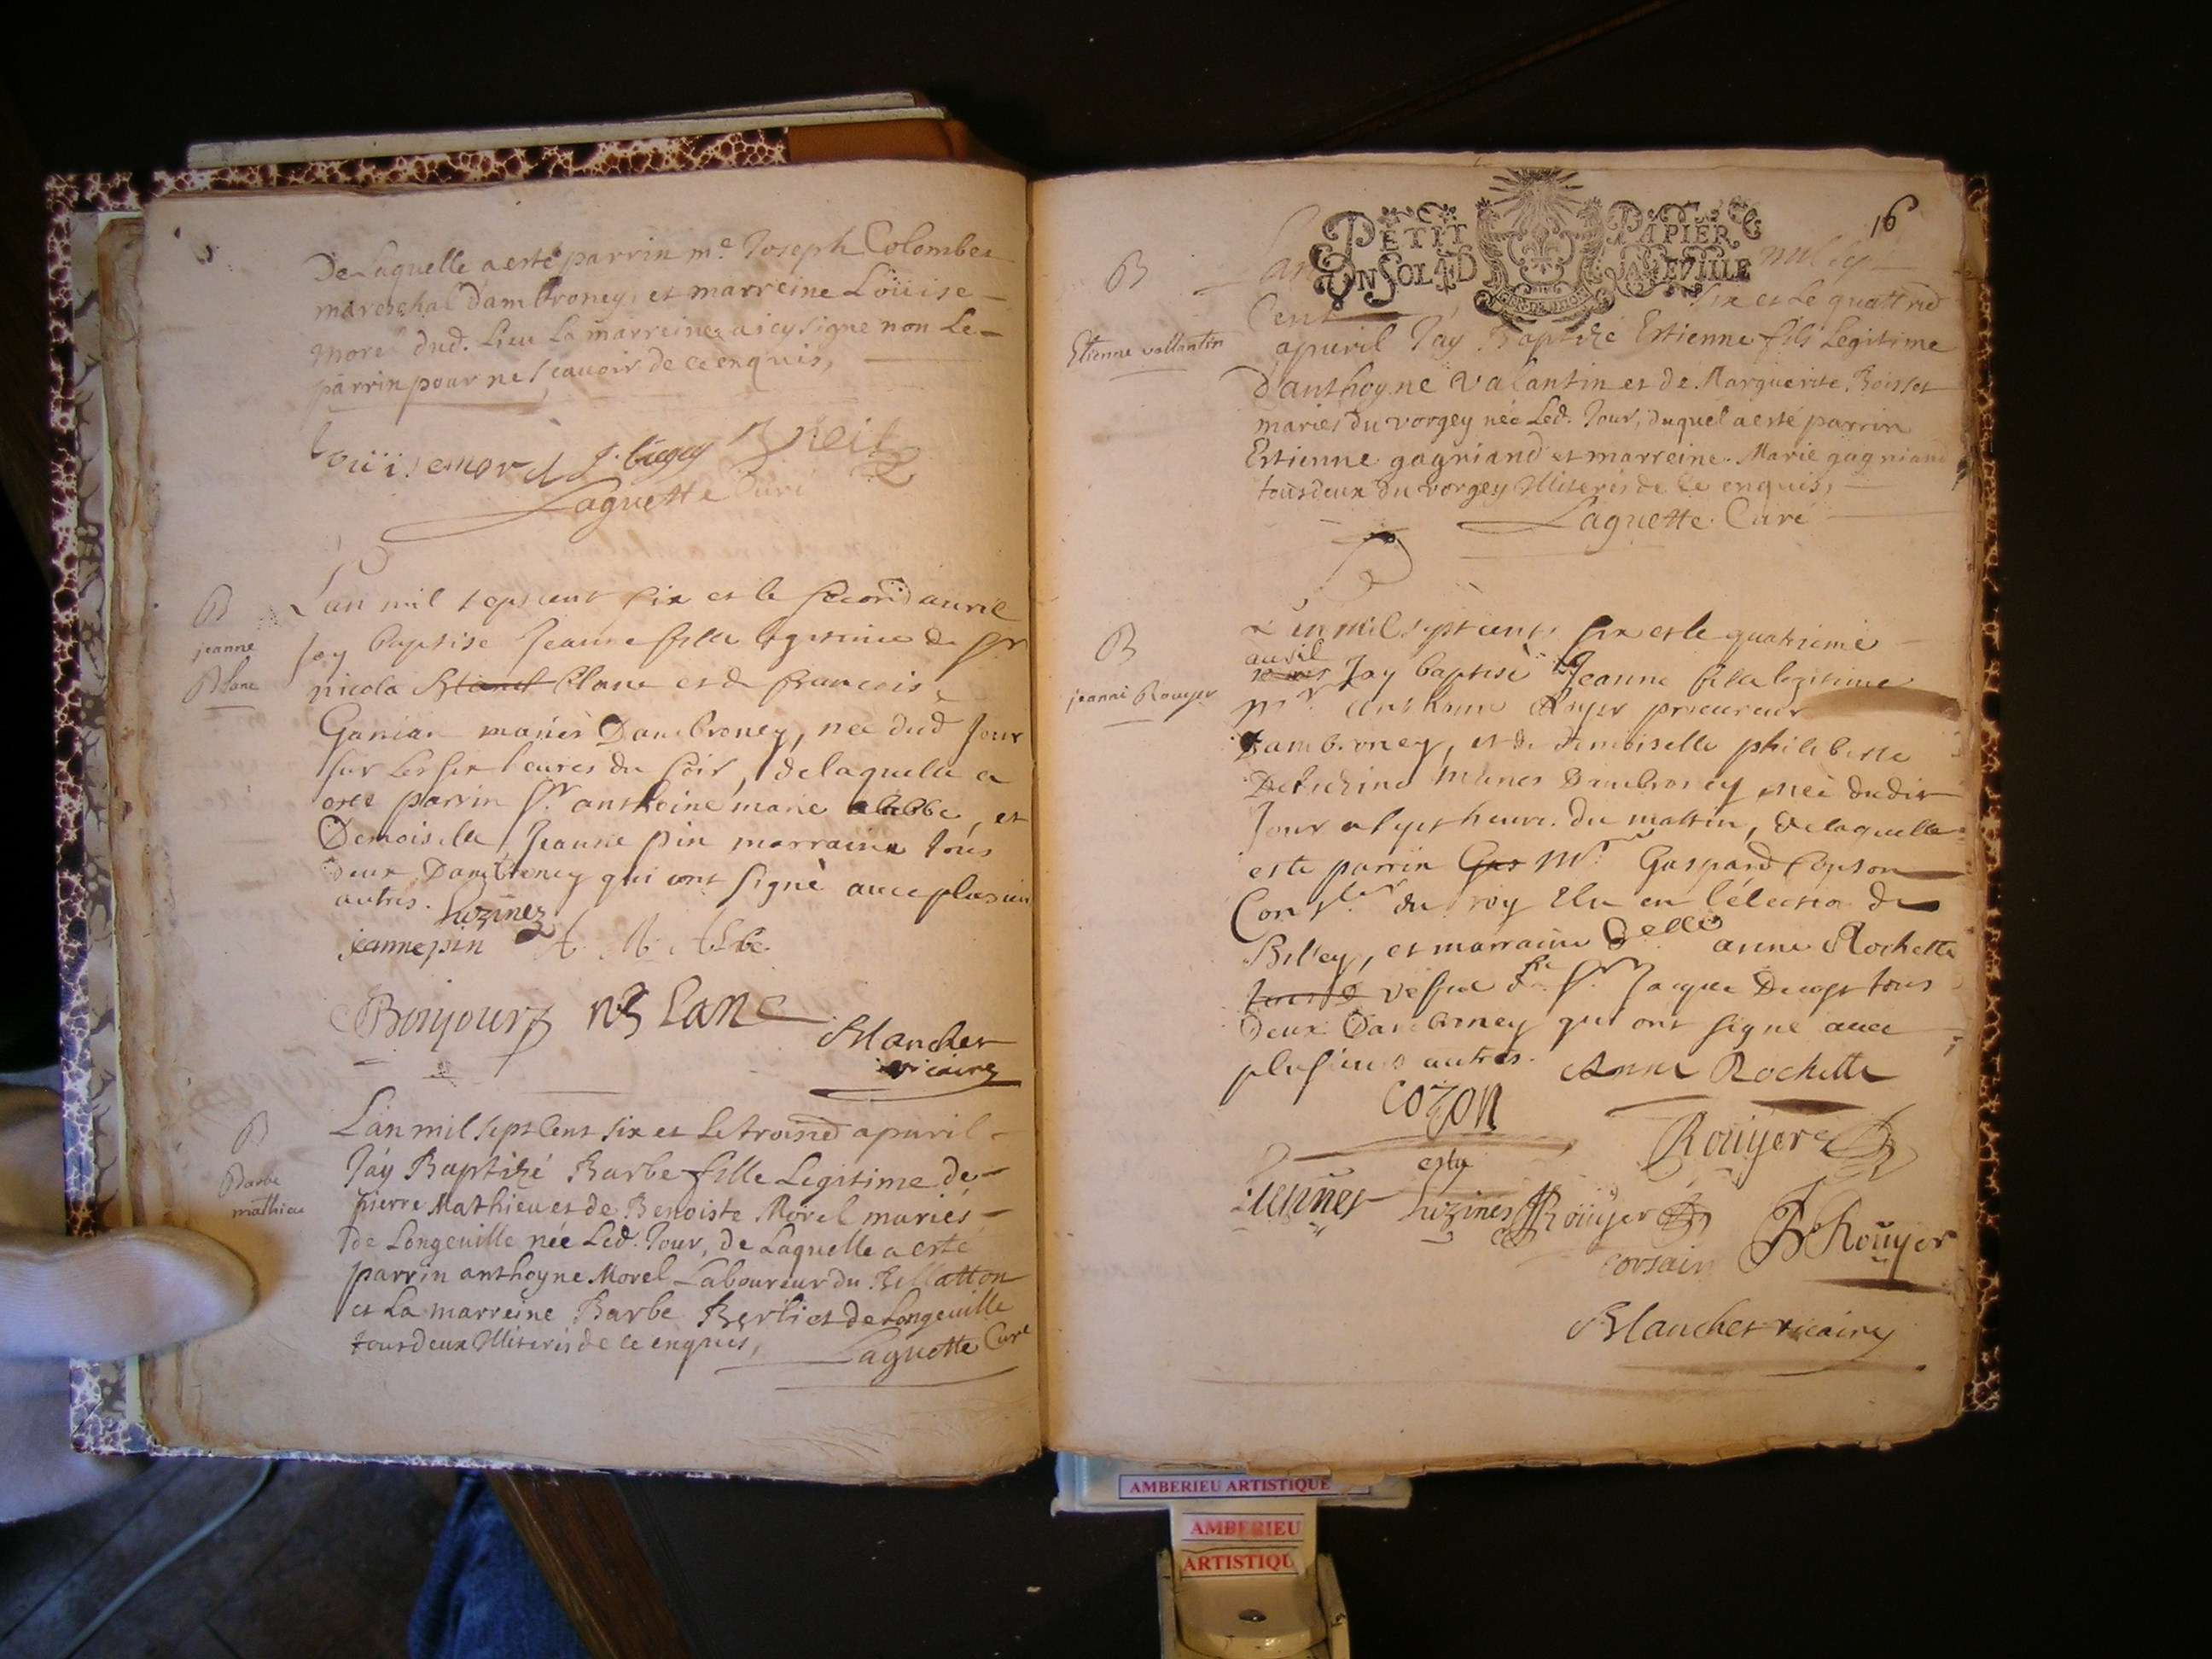 De Laquelle a esté parrin m.e Joseph Colombet
mareschal dambroney, et marreine Loüise
Morel dud. Lieu La marreine a icy signé non Le
parrin pour ne scauoir de ce enquis,
Loüise morel
Laguette Curé
B
jeanne
Blanc
Lan mil sept cent six et le second auril
Jay baptisé Jeanne fille legitime de Sr
nicola Blanc et de francoise
Ganian mariés Dambroney, née dud Jour
sur les six heures du soir, delaquelle a
esté parrin Sr. anthoine marie alabbe, et
Demoiselle Jeanne pin marraine tous
deux Dambroney qui ont signé auec plusieurs
autres. Luzines
jeanne pin A. M. Abbe
Bonjour n Blanc
Blanchet
vicaire
B
Barbe
mathieu
Lan mil sept Cent six et Le troised apuril
Jáy Baptizé Barbe fille Legitime de
pierre Mathieu et de Benoiste Morel mariés
de Longeuille née Led. Jour, de Laquelle a esté
parrin anthoyne Morel Laboureur du Bellatton
et La marreine Barbe Berliet de Longeuille
tous deux Illiterés de ce enquis,
Laguette Curé
16
PETIT PAPIER
UN SOL 4 D LA FEUILLE
B
Etienne vallantin
Lan mil sept
Cent six et Le quattried
apuril Jáy Baptizé Estienne fils Legitime
Danthoyne Valantin et de Marguerite Boisset
mariés du vorgey née Led. Jour, duquel a esté parrin
Estienne gagniand et marreine Marie gagniand
tous deux du vorgey Illiterés de ce enquis,
Laguette Curé
B
jeanne Rouyer
L'an mil sept cent six et le quatrieme
auril
Jay baptisé Jeanne fille legitime
Mr. anthime Royer procureur
Dambroney, et de demoiselle philiberte
mariés Dambroney née dudit
Jour a sept heures du mattin, delaquelle
esté parrin Gas Mr. Gaspard Conson
Conser. du roy Elu en l'élection de
Belley, et marraine Delle anne Rochette
vefue de Sr. Jacque tous
deux Dambroney qui ont signé auec
plusieurs autres. Anne Rochette
COZON
Rouyer
Luzines Rouyer
Corsain Rouyer
Blanchet vicaire
AMBERIEU ARTISTIQUE
AMBERIEU
ARTISTIQU